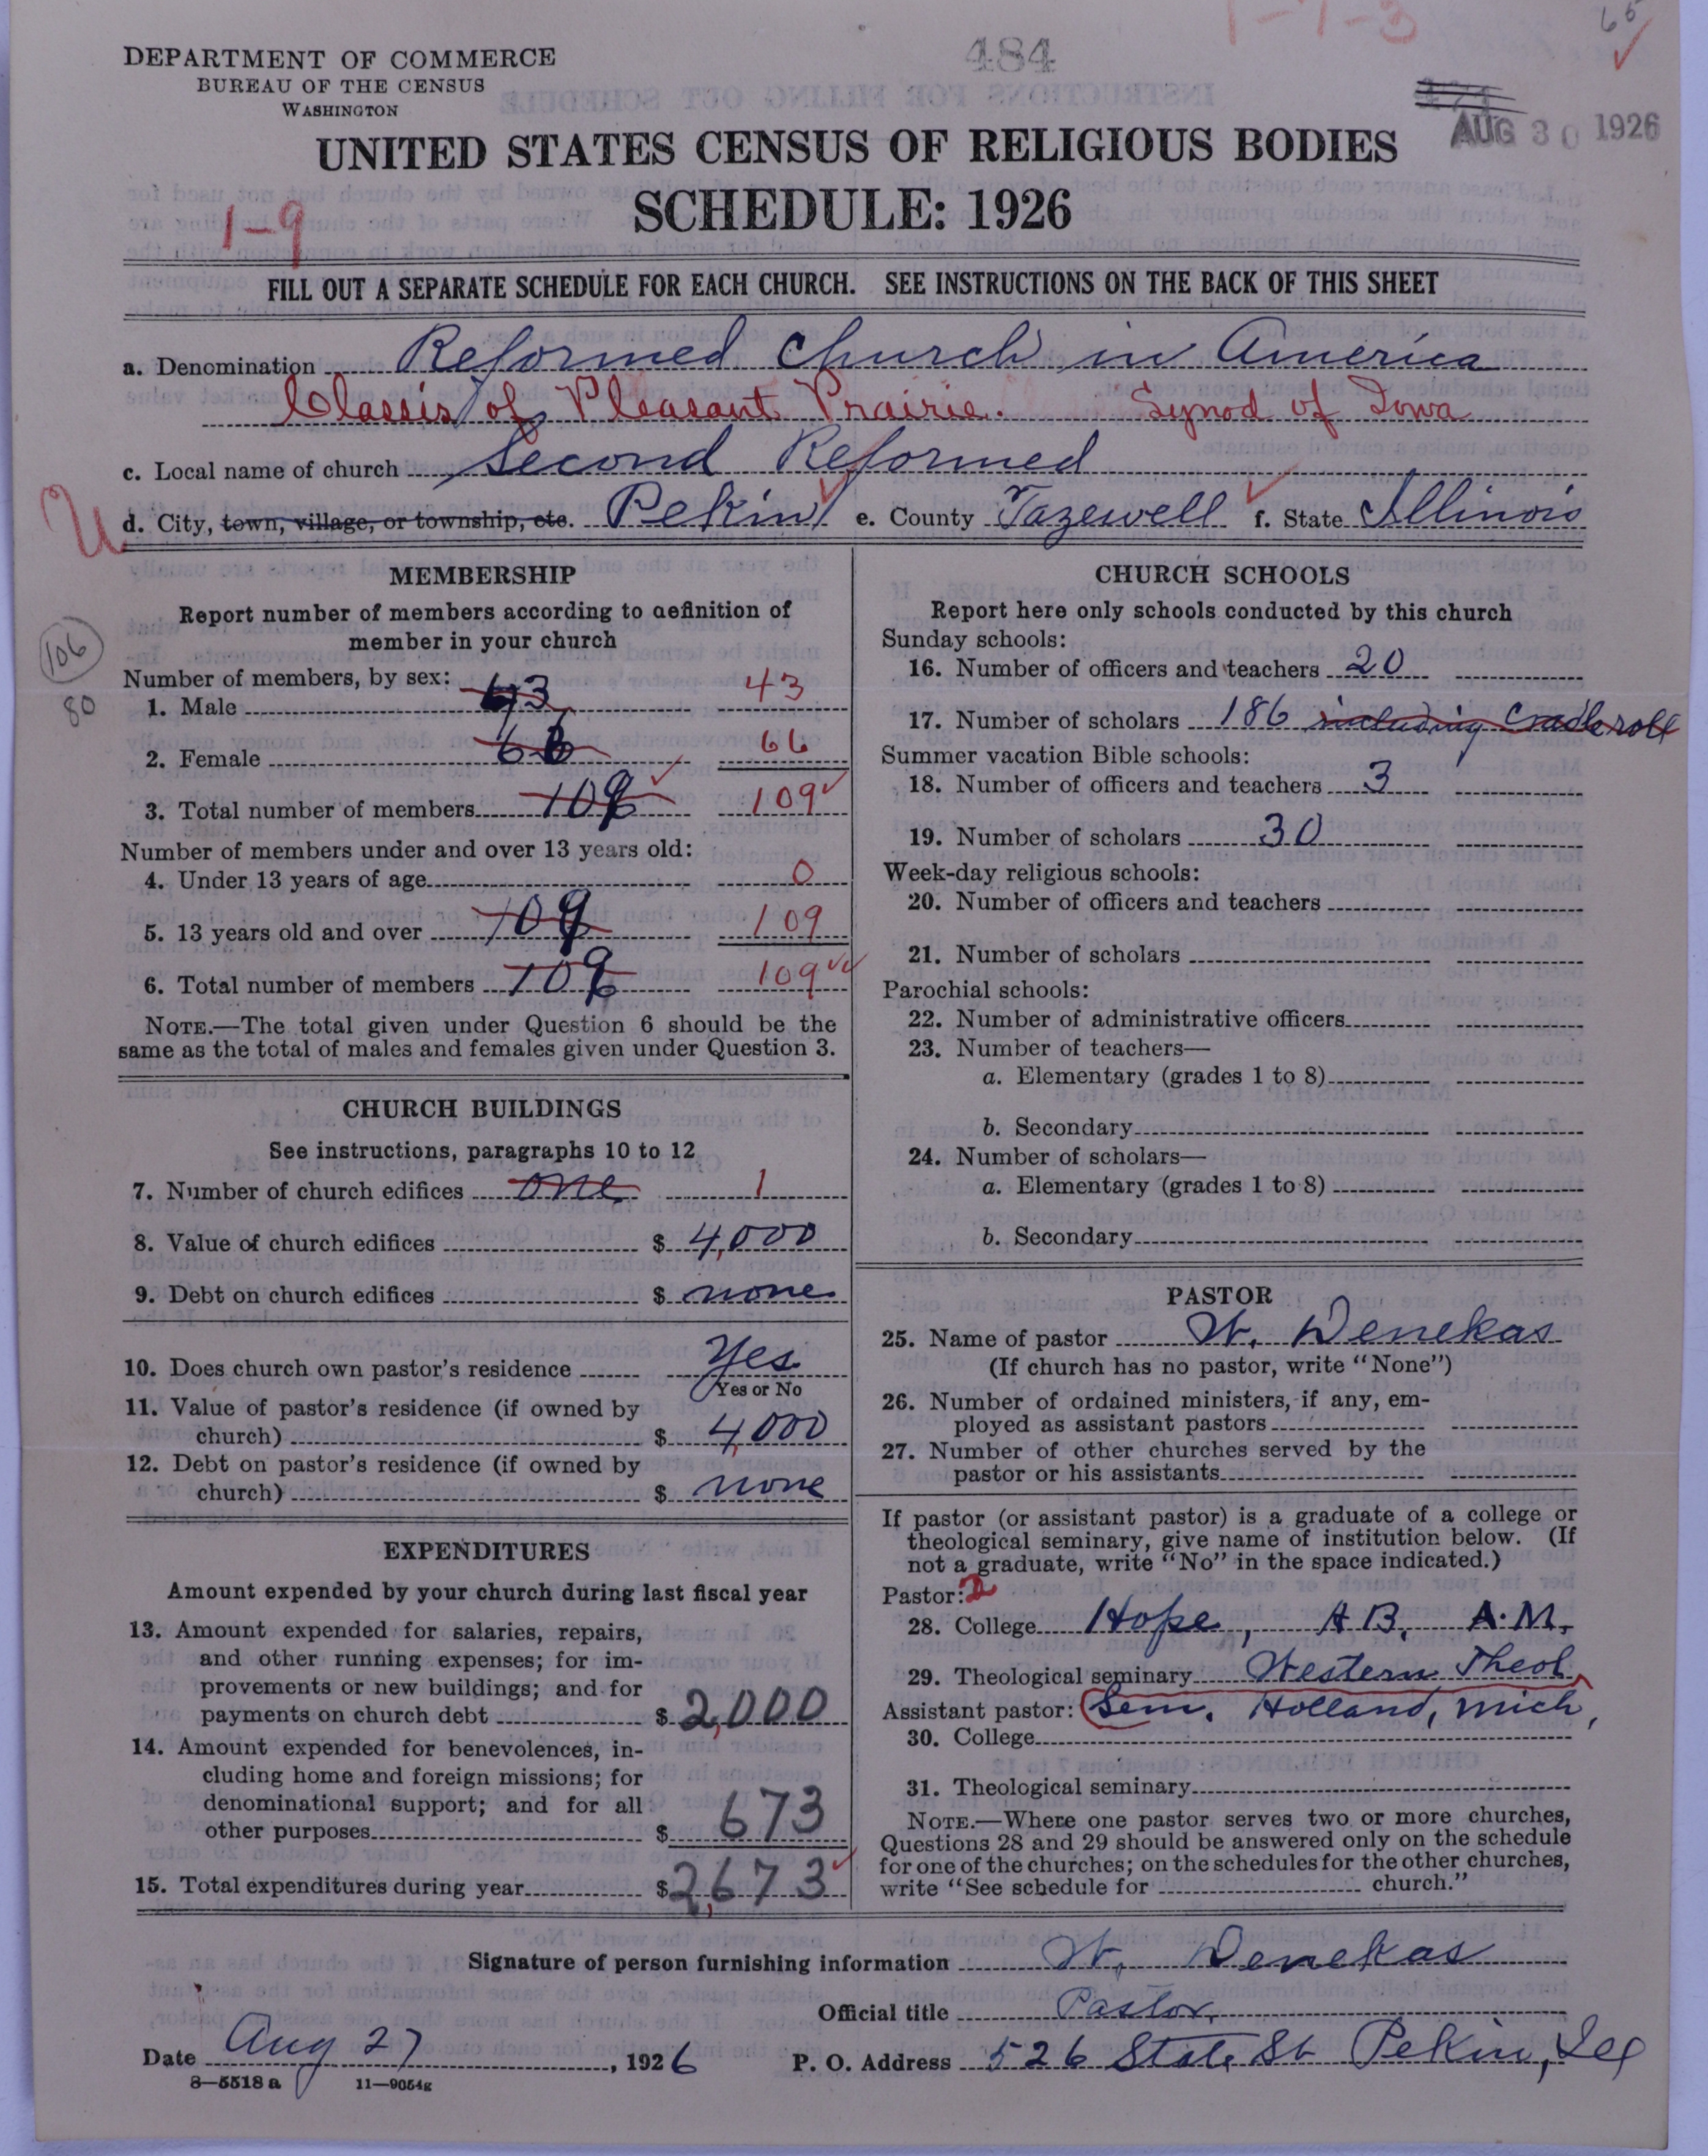 1-7-3
65
484
DEPARTMENT OF COMMERCE
BUREAU OF THE CENSUS
WASHINGTON
AUG 30 1926
UNITED STATES CENSUS OF RELIGIOUS BODIES
SCHEDULE: 1926
1-9
FILL OUT A SEPARATE SCHEDULE FOR EACH CHURCH. SEE INSTRUCTIONS ON THE BACK OF THIS SHEET
a. Denomination Reformed Church in America
Classis of Pleasant Prairie. Synod of Iowa
c. Local name of church Second Reformed
U
d. City, town, village, or township, etc. Pekin e. County Tazewell f. State Illinois
MEMBERSHIP
Report number of members according to definition of
member in your church
106
80
Number of members, by sex:
1. Male 43 43
2. Female 66 66
3. Total number of members 109 109
Number of members under and over 13 years old:
4. Under 13 years of age 0
5. 13 years old and over 109 109
6. Total number of members 109 109
NOTE.—The total given under Question 6 should be the
same as the total of males and females given under Question 3.
CHURCH BUILDINGS
See instructions, paragraphs 10 to 12
7. Number of church edifices one 1
8. Value of church edifices $ 4,000
9. Debt on church edifices $ none
10. Does church own pastor's residence Yes
Yes or No
11. Value of pastor's residence (if owned by
church) $ 4,000
12. Debt on pastor's residence (if owned by
church) $ none
EXPENDITURES
Amount expended by your church during last fiscal year
13. Amount expended for salaries, repairs,
and other running expenses; for im-
provements or new buildings; and for
payments on church debt $ 2,000
14. Amount expended for benevolences, in-
cluding home and foreign missions; for
denominational support; and for all
other purposes $ 673
15. Total expenditures during year $ 2,673
CHURCH SCHOOLS
Report here only schools conducted by this church
Sunday schools:
16. Number of officers and teachers 20
17. Number of scholars 186 including Cradle roll
Summer vacation Bible schools:
18. Number of officers and teachers 3
19. Number of scholars 30
Week-day religious schools:
20. Number of officers and teachers
21. Number of scholars
Parochial schools:
22. Number of administrative officers
23. Number of teachers—
a. Elementary (grades 1 to 8)
b. Secondary
24. Number of scholars—
a. Elementary (grades 1 to 8)
b. Secondary
PASTOR
25. Name of pastor W. Denekas
(If church has no pastor, write "None")
26. Number of ordained ministers, if any, em-
ployed as assistant pastors
27. Number of other churches served by the
pastor or his assistants
If pastor (or assistant pastor) is a graduate of a college or
theological seminary, give name of institution below. (If
not a graduate, write "No" in the space indicated.)
Pastor: 2
28. College Hope, A B, A.M.
29. Theological seminary Western Theol
Assistant pastor: Sem. Holland, Mich,
30. College
31. Theological seminary
NOTE.—Where one pastor serves two or more churches,
Questions 28 and 29 should be answered only on the schedule
for one of the churches; on the schedules for the other churches,
write "See schedule for church."
Signature of person furnishing information W. Denekas
Official title Pastor,
Date Aug 27, 1926 P. O. Address 526 State St Pekin, Ill
8—5518 a 11—9054g